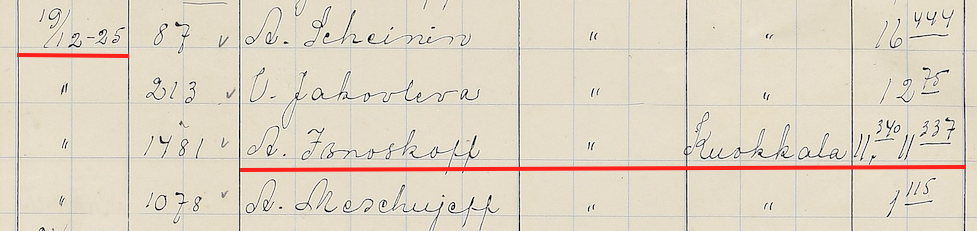 19/12-25 87 v A. Scheinin " 16 444
" 213 v V. Jakovleva " " 12 75
" 1481 v A. Isnoskoff " Kuokkala 11,340 11 337
" 1078 v A. Meschujeff " " 1 115